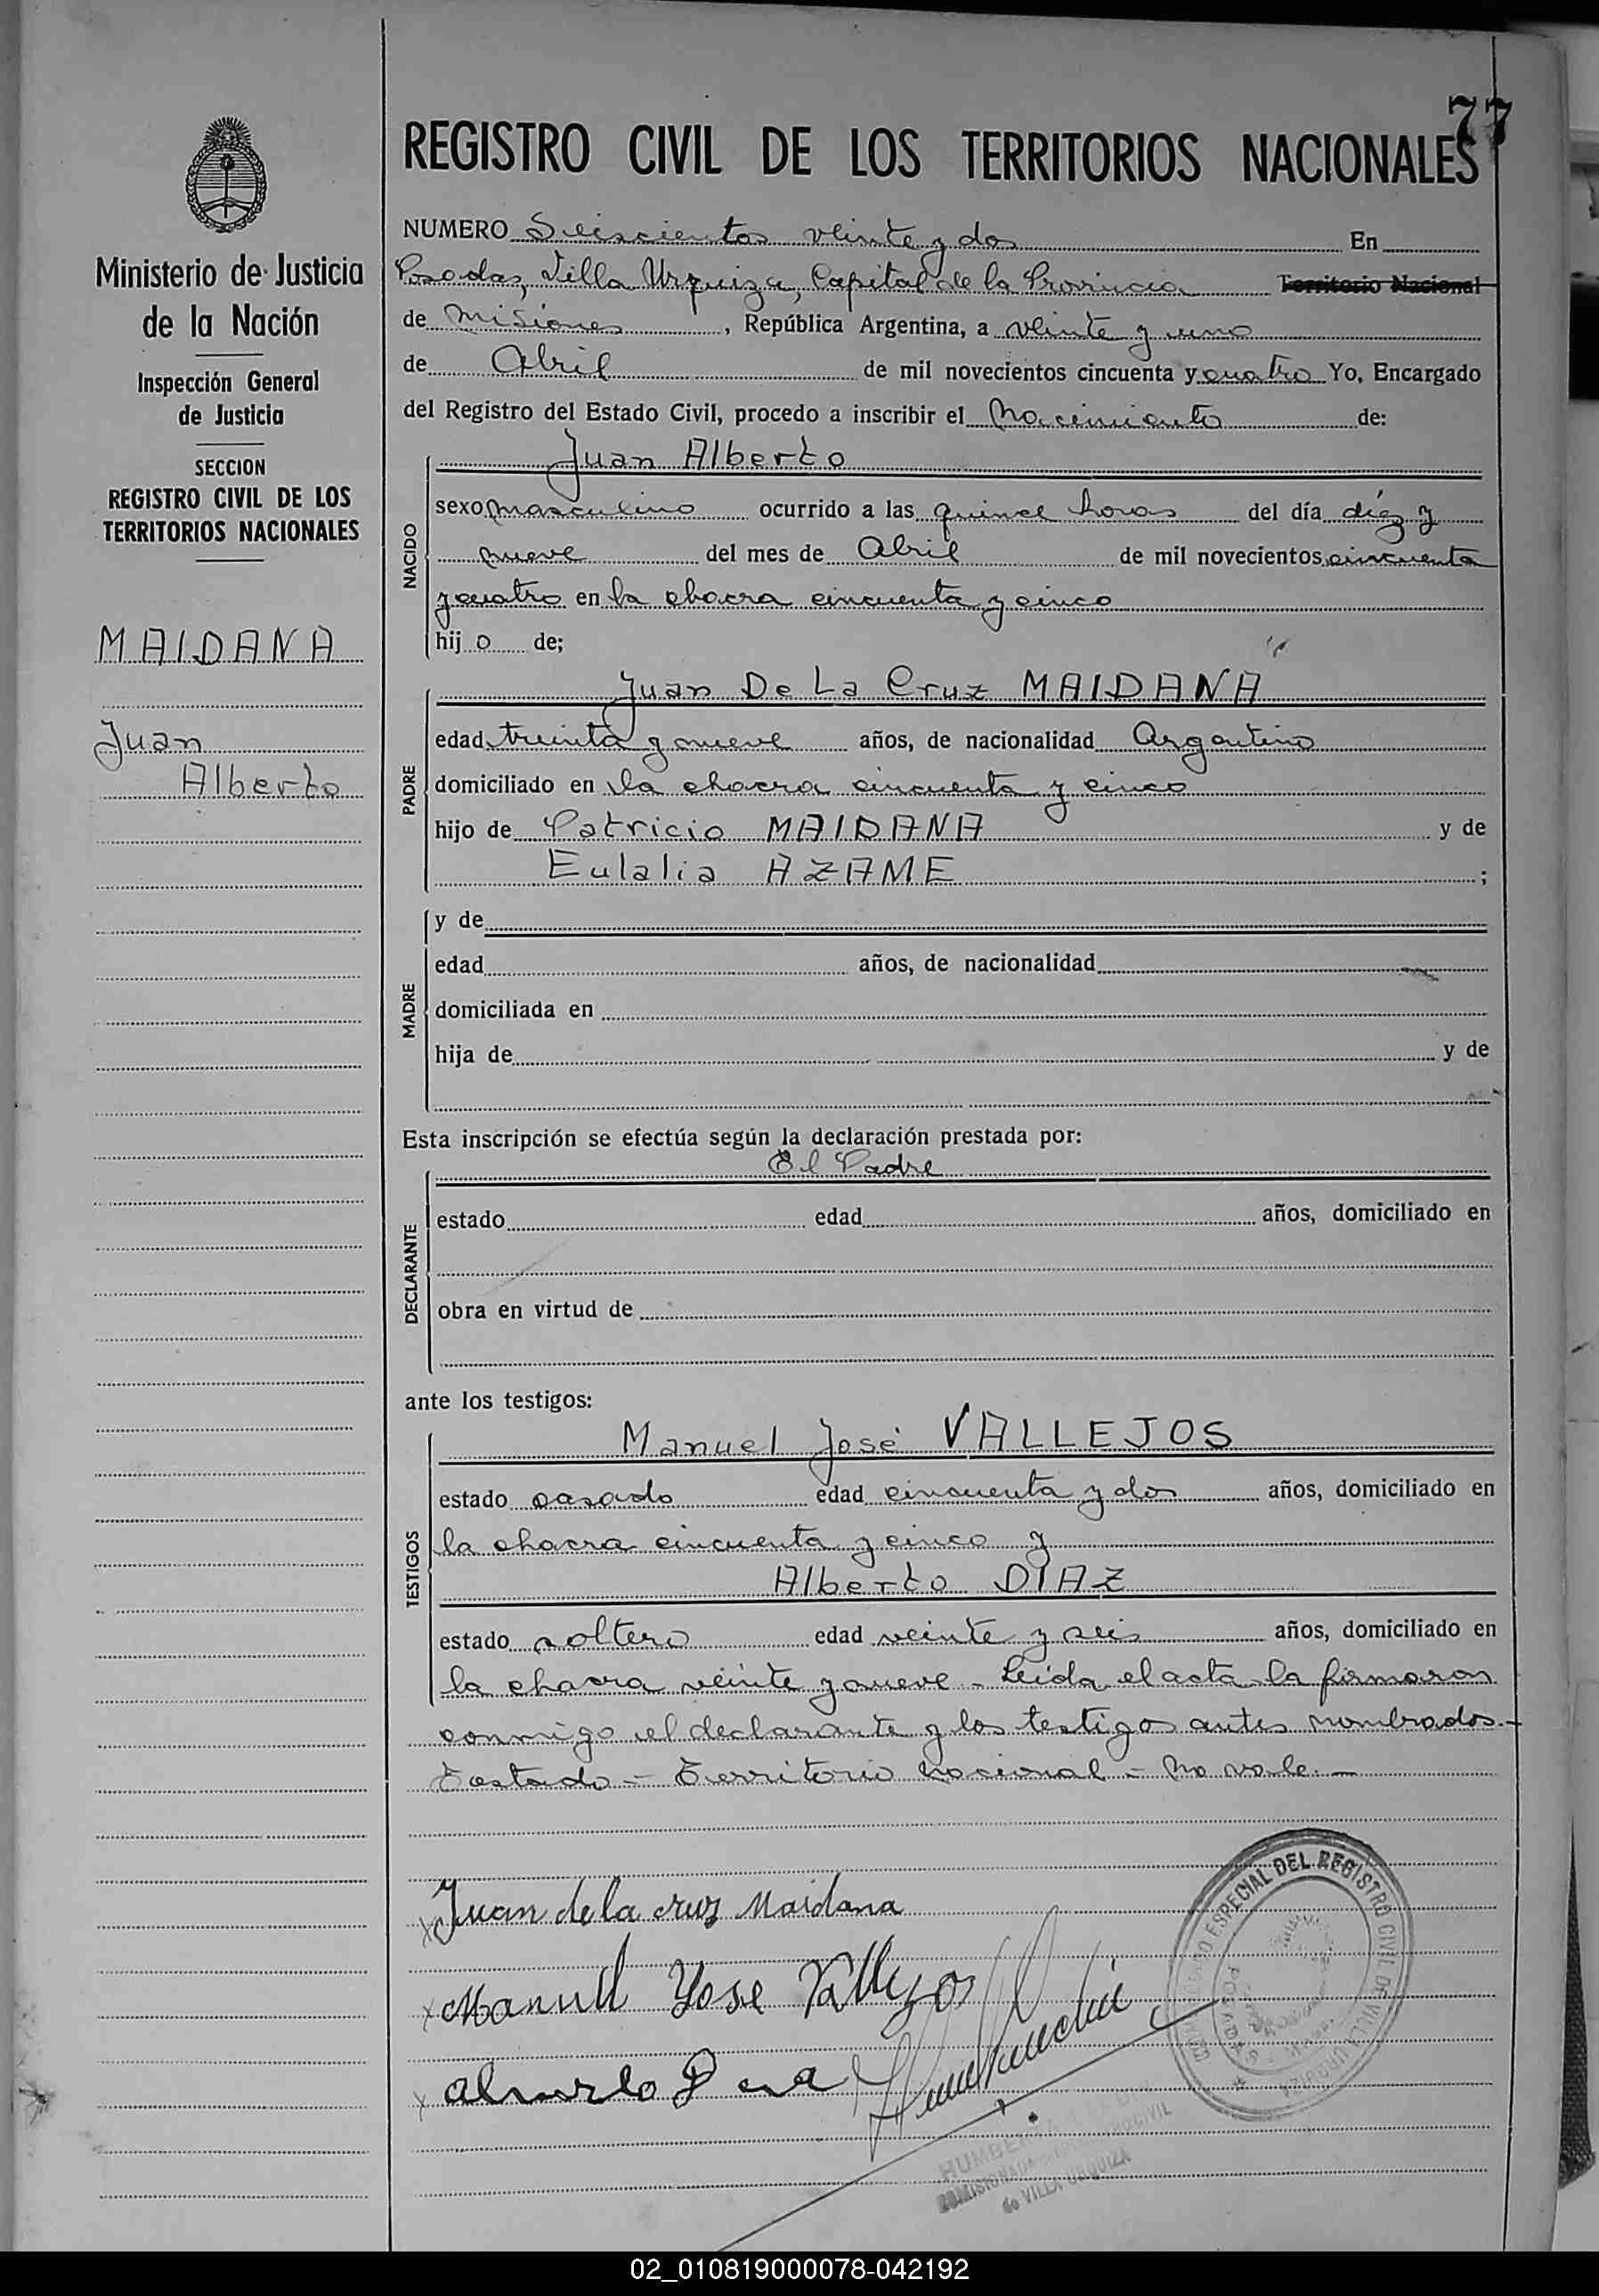 77
REGISTRO CIVIL DE LOS TERRITORIOS NACIONALES
Ministerio de Justicia
de la Nación
Inspección General
de Justicia
SECCION
REGISTRO CIVIL DE LOS
TERRITORIOS NACIONALES
MAIDANA
Juan
Alberto
NUMERO Seiscientos veinte y dos En
Posadas, Villa Urquiza, Capital de la Provincia Territorio Nacional
de Misiones, República Argentina, a veinte y uno
de Abril de mil novecientos cincuenta y cuatro Yo, Encargado
del Registro del Estado Civil, procedo a inscribir el Nacimiento de:
NACIDO
Juan Alberto
sexo masculino ocurrido a las quince horas del día diéz y
nueve del mes de Abril de mil novecientos cincuenta
y cuatro en la chacra cincuenta y cinco
hijo de;
PADRE
Juan De La Cruz MAIDANA
edad treinta y nueve años, de nacionalidad Argentino
domiciliado en la chacra cincuenta y cinco
hijo de Patricio MAIDANA y de
Eulalia AZAME;
MADRE
y de
edad años, de nacionalidad
domiciliada en
hija de y de
Esta inscripción se efectúa según la declaración prestada por:
DECLARANTE
El Padre
estado edad años, domiciliado en
obra en virtud de
ante los testigos:
TESTIGOS
Manuel José VALLEJOS
estado casado edad cincuenta y dos años, domiciliado en
la chacra cincuenta y cinco y
Alberto DIAZ
estado soltero edad veinte y seis años, domiciliado en
la chacra veinte y nueve - Leida el acta la firmaron
conmigo el declarante y los testigos antes nombrados.-
Testado - Territorio Nacional - No vale.-
Juan de la cruz Maidana
Manuel Yose Vallejos
ESPECIAL DEL REGISTRO CIVIL DE VILLA URQUIZA
POSADAS
REGISTRO CIVIL
de VILLA URQUIZA
02_010819000078-042192